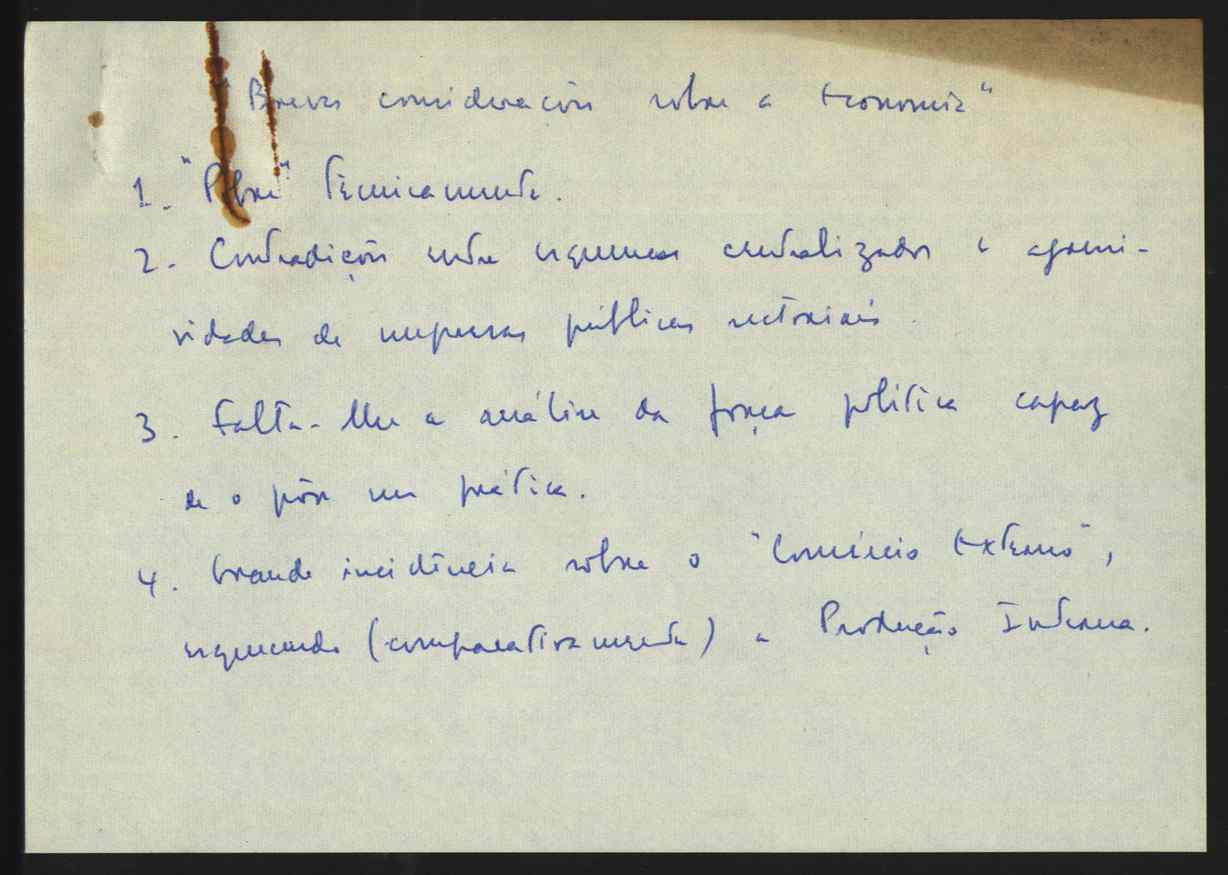 "Breves considerações sobre a Economia"
1. "Pobre" tècnicamente.
2. Contradições entre esquemas centralizados e
de empresas públicas sectoriais.
3. Falta-lhe a análise da força política capaz
de o pôr em prática.
4. Grande incidência sobre o "Comércio Externo",
esquecendo (comparativamente) a Produção Interna.